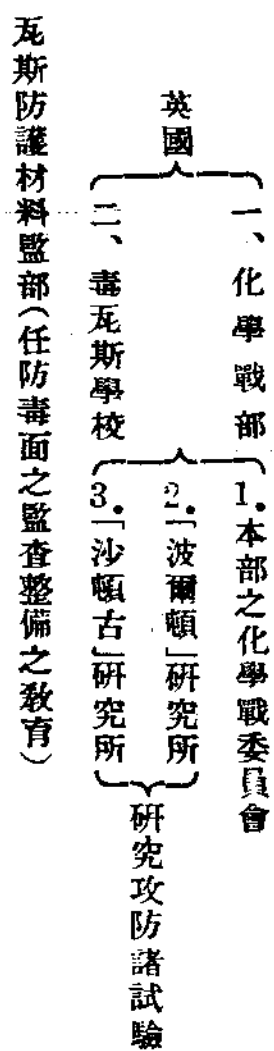 英國
一、化學戰部
1.本部之化學戰委員會
2.「波爾頓」研究所
3.「沙頓古」研究所
研究攻防諸試驗
二、毒瓦斯學校
瓦斯防護材料監部(任防毒面之監查整備之敎育)